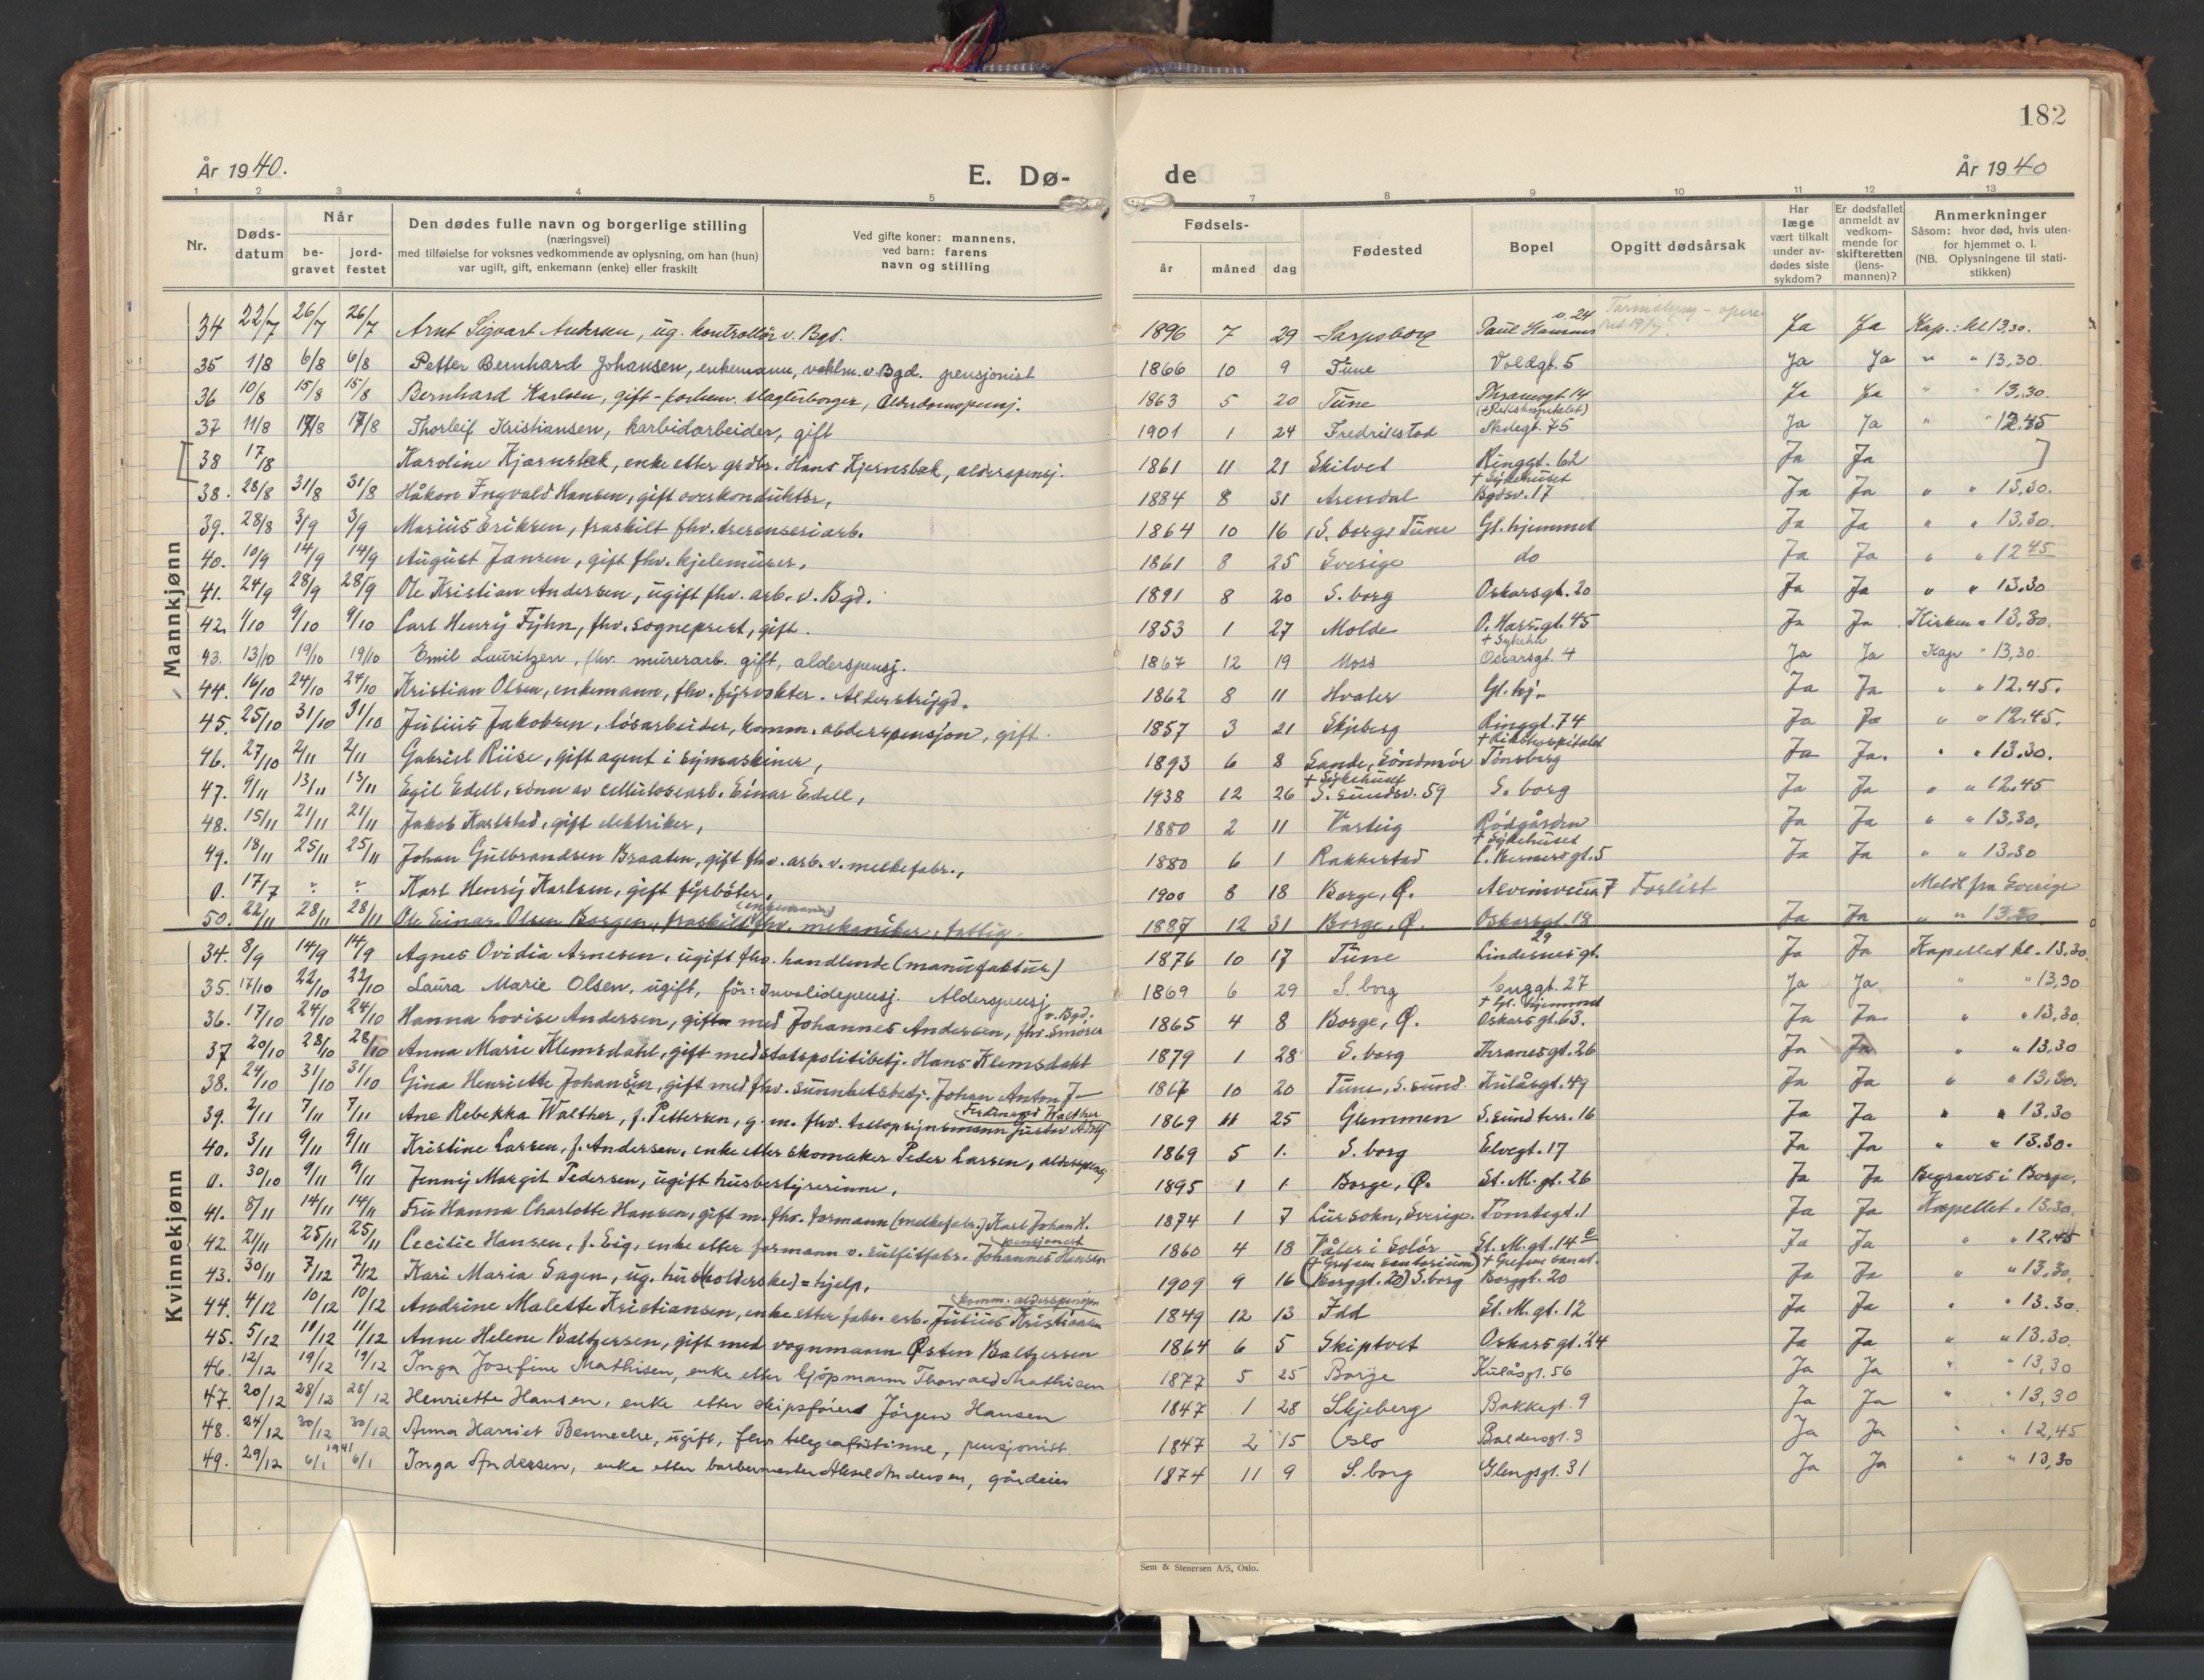 182
År 1940.
E. Dø-
de
År 1940
1 2 3 4 5 7 8 9 10 11 12 13
Nr.
Døds-datum
Når
be-gravet
jord-festet
Den dødes fulle navn og borgerlige stilling
(næringsvei)
med tilføielse for voksnes vedkommende av oplysning, om han (hun)
var ugift, gift, enkemann (enke) eller fraskilt
Ved gifte koner: mannens,
ved barn: farens
navn og stilling
Fødsels-
år måned dag
Fødested
Bopel
Opgitt dødsårsak
Har læge vært tilkalt under av-dødes siste sykdom?
Er dødsfallet anmeldt av vedkom-mende for skifteretten (lens-mannen)?
Anmerkninger
Såsom: hvor død, hvis uten-for hjemmet o. l.
(NB. Oplysningene til stati-stikken)
Mannkjønn
34 22/7 26/7 26/7 Arnt Sigvart Andersen, ug. kontrollør v. Bgd. 1896 7 29 Sarpsborg Ja Ja Kap.: kl 13,30.
35 1/8 6/8 6/8 Petter Bernhard Johansen, enkemann, v. Bgd. pensjonist 1866 10 9 Tune Voldgt. 5 Ja Ja " " 13,30.
36 10/8 15/8 15/8 Bernhard Karlsen, gift - Alderdomspensj. 1863 5 20 Tune Thranesgt 14 Ja Ja " " 13,30.
37 11/8 17/8 17/8 Thorleif Kristiansen, karbidarbeider, gift 1901 1 24 Fredrikstad (+Rikshospitalet) 75 Ja Ja " " 12.45
[38 17/8 Karoline Kjærnsbæk, enke etter grdbr. Hans Kjernsbæk, alderspensj. 1861 11 21 Skitvet Ringgt. 62 Ja Ja ]
38. 28/8 31/8 31/8 Håkon Ingvald Hansen, gift overkonduktør, 1884 8 31 Arendal + Sykehuset Bgdsv. 17 Ja Ja " " 13,30.
39. 28/8 3/9 3/9 Marius Eriksen, fraskilt fhv. 1864 10 16 Tune Gl. hjemmet Ja Ja " " 13.30.
40. 10/9 14/9 14/9 August Jansen, gift fhv. kjelemurer, 1861 8 25 Sverige do Ja Ja " " 12 45
41. 24/9 28/9 28/9 Ole Kristian Andersen, ugift fhv. arb. v. Bgd. 1891 8 20 S. borg Oskarsgt. 20 Ja Ja " " 13.30
42. 1/10 9/10 9/10 Carl Henry Fyhn, fhv. sogneprest, gift. 1853 1 27 Molde O. Haarsgt. 45 Ja Ja Kirken " 13.30.
43. 13/10 19/10 19/10 Emil Lauritzen, fhv. murerarb. gift, alderspensj. 1867 12 19 Moss + Sykeh. Oscarsgt. 4 Ja Ja Kap " 13,30.
44. 16/10 24/10 24/10 Kristian Olsen, enkemann, fhv. fyrvokter. Alderstrygd. 1862 8 11 Hvaler Gl. hj. Ja Ja " " 12.45.
45. 25/10 31/10 31/10 Julius Jakobsen, løsarbeider, komm. alderspensjon, gift. 1857 3 21 Skjeberg Ringgt. 74 Ja Ja " " 12.45.
46. 27/10 2/11 2/11 Gabriel Riise, gift agent i symaskiner, 1893 6 8 Sande, Söndmör + Rikshospitalet Tönsberg Ja Ja. " " 13.30.
47. 9/11 13/11 13/11 Egil Edell, sönn av cellulosearb. Einar Edell, 1938 12 26 + Sykehuset S. sundsv. 59 S. borg Ja Ja " " 12.45
48. 15/11 21/11 21/11 Jakob Karlstad, gift elektriker, 1880 2 11 Varteig Rödgården Ja Ja " " 13.30.
49. 18/11 25/11 25/11 Johan Gulbrandsen Braaten, gift fhv. arb. v. melkefabr., 1880 6 1 Rakkestad + Sykehuset gt. 5 Ja Ja " " 13.30
0. 17/7 ? ? Karl Henry Karlsen, gift fyrböter, 1900 8 18 Borge, Ø. Alveimveien 7 Forlist Meldt fra Sverige
50. 22/11 28/11 28/11 Ole Einar Olsen Borgen, fraskilt (enkemann) fhv. mekaniker, fattig. 1887 12 31 Borge, Ø. Oskarsgt. 18 Ja Ja " " 13.30
Kvinnekjønn
34. 8/9 14/9 14/9 Agnes Ovidia Arnesen, ugift fhv. handlende (manufaktur) 1876 10 17 Tune Lindernesgt. 29 Ja Ja Kapellet kl. 13.30.
35. 17/10 22/10 22/10 Laura Marie Olsen, ugift, før: Invalidepensj. Alderspensj 1869 6 29 S. borg Enggt. 27 Ja Ja " " 13,30
36. 17/10 24/10 24/10 Hanna Lovise Andersen, gift med Johannes Andersen, fhv. Smörer v. Bgd. 1865 4 8 Borge, Ø. + Gl. hjemmet Oskarsgt. 63. Ja Ja " " 13.30.
37 20/10 28/10 28/10 Anna Marie Klemsdahl, gift med statspolitibetj. Hans Klemsdahl 1879 1 28 S. borg Thranesgt. 26 Ja Ja " " 13.30
38. 24/10 31/10 31/10 Gina Henriette Johansen, gift med fhv. sunnhetsbetj. Johan Anton J- 1867 10 20 Tune, S. sund. Kulåsgt. 49 Ja Ja " " 13.30.
39. 2/11 7/11 7/11 Ane Rebekka Walther, f. Pettersen, g. m. fhv. tolloppsynsmann Gustav Adolf Ferdinand Walther 1869 11 25 Glemmen S. sund terr. 16 Ja Ja " " 13.30
40. 3/11 9/11 9/11 Kristine Larsen, f. Andersen, enke etter skomaker Peder Larsen, alderspensj 1869 5 1. S. borg Elvegt. 17 Ja Ja " " 13.30.
0. 30/10 9/11 9/11 Jenny Margit Pedersen, ugift husbestyrerinne, 1895 1 1 Borge, Ø. St. M. gt. 26 Ja Ja Begraves i Borge.
41. 8/11 14/11 14/11 Fru Hanna Charlotte Hansen, gift m. fhv. formann (melkefabr.) Karl Johan H. 1874 1 7 Lur sokn, Sverige. Tomtegt. 1 Ja Ja Kapellet. 13.30.
42. 21/11 25/11 25/11 Cecilie Hansen, f. Eig, enke etter formann v. sulfitfabr. Johannes Hansen pensjonert 1860 4 18 Våler i Solör St. M. gt. 14 c Ja Ja " " 12.45
43. 30/11 7/12 7/12 Kari Maria Sagen, ug. hus(holderske) = hjelp, 1909 9 16 (+ Grefsen sanatorium) (Borggt. 20) S. borg + Grefsen sanat. Borggt. 20 Ja Ja " " 13.30.
44. 4/12 10/12 10/12 Andrine Malette Kristiansen, enke etter fabr. arb. Julius Kristiansen komm. alderspensjon 1849 12 13 Idd St. M. gt. 12 Ja Ja " " 13.30.
45. 5/12 11/12 11/12 Anne Helene Baltzersen, gift med vognmann Østen Baltzersen 1864 6 5 Skiptvet Oskarsgt. 24 Ja Ja " " 13.30.
46. 12/12 19/12 19/12 Inga Josefine Mathisen, enke etter kjøpmann Thorvald Mathisen 1877 5 25 Borge Kulåsgt. 56 Ja Ja " " 13,30
47. 20/12 28/12 28/12 Henriette Hansen, enke etter skipsfører Jørgen Hansen 1847 1 28 Skjeberg Bakkegt. 9 Ja Ja " " 13,30
48. 24/12 30/12 30/12 Anna Harriet Bennecke, ugift, fhv. telegrafistinne, pensjonist. 1847 2 15 Oslo Baldersgt. 3 Ja Ja " " 12,45
49. 29/12 6/1 1941 6/1 Inga Andersen, enke etter barbermester Aksel Andersen, gårdeier 1874 11 9 S. borg Glengsgt. 31 Ja Ja " " 13,30
Sem & Stenersen A/S, Oslo.